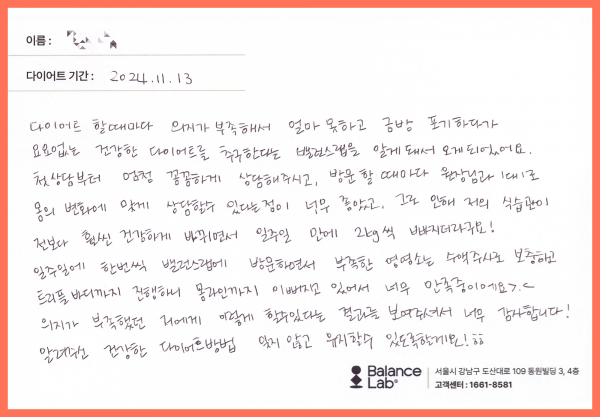 이름 :
다이어트 기간 : 2024.11.13
다이어트 할때마다 의지가 부족해서 얼마 못하고 금방 포기하다가
요요없는 건강한 다이어트를 추구한다는 밸런스랩을 알게돼서 오게되었어요.
첫상담부터 엄청 꼼꼼하게 상담해주시고, 방문 할 때마다 원장님과 1대1로
몸의 변화에 맞게 상담할수 있다는점이 너무 좋았고, 그로 인해 저의 식습관이
전보다 훨씬 건강하게 바뀌면서 일주일 만에 2kg씩 빠지더라구요!
일주일에 한번씩 밸런스랩에 방문하면서 부족한 영영소는 수액주사로 보충하고
트리플바디까지 진행하니 몸라인까지 이뻐지고 있어서 너무 만족중이에요>.<
의지가 부족했던 저에게 이렇게 할수있다는 결과를 보여주셔서 너무 감사합니다!
알려주신 건강한 다이어트방법 잊지 않고 유지할수 있도록할게요!ㅎㅎ
Balance Lab®
서울시 강남구 도산대로 109 동원빌딩 3, 4층
고객센터 : 1661-8581